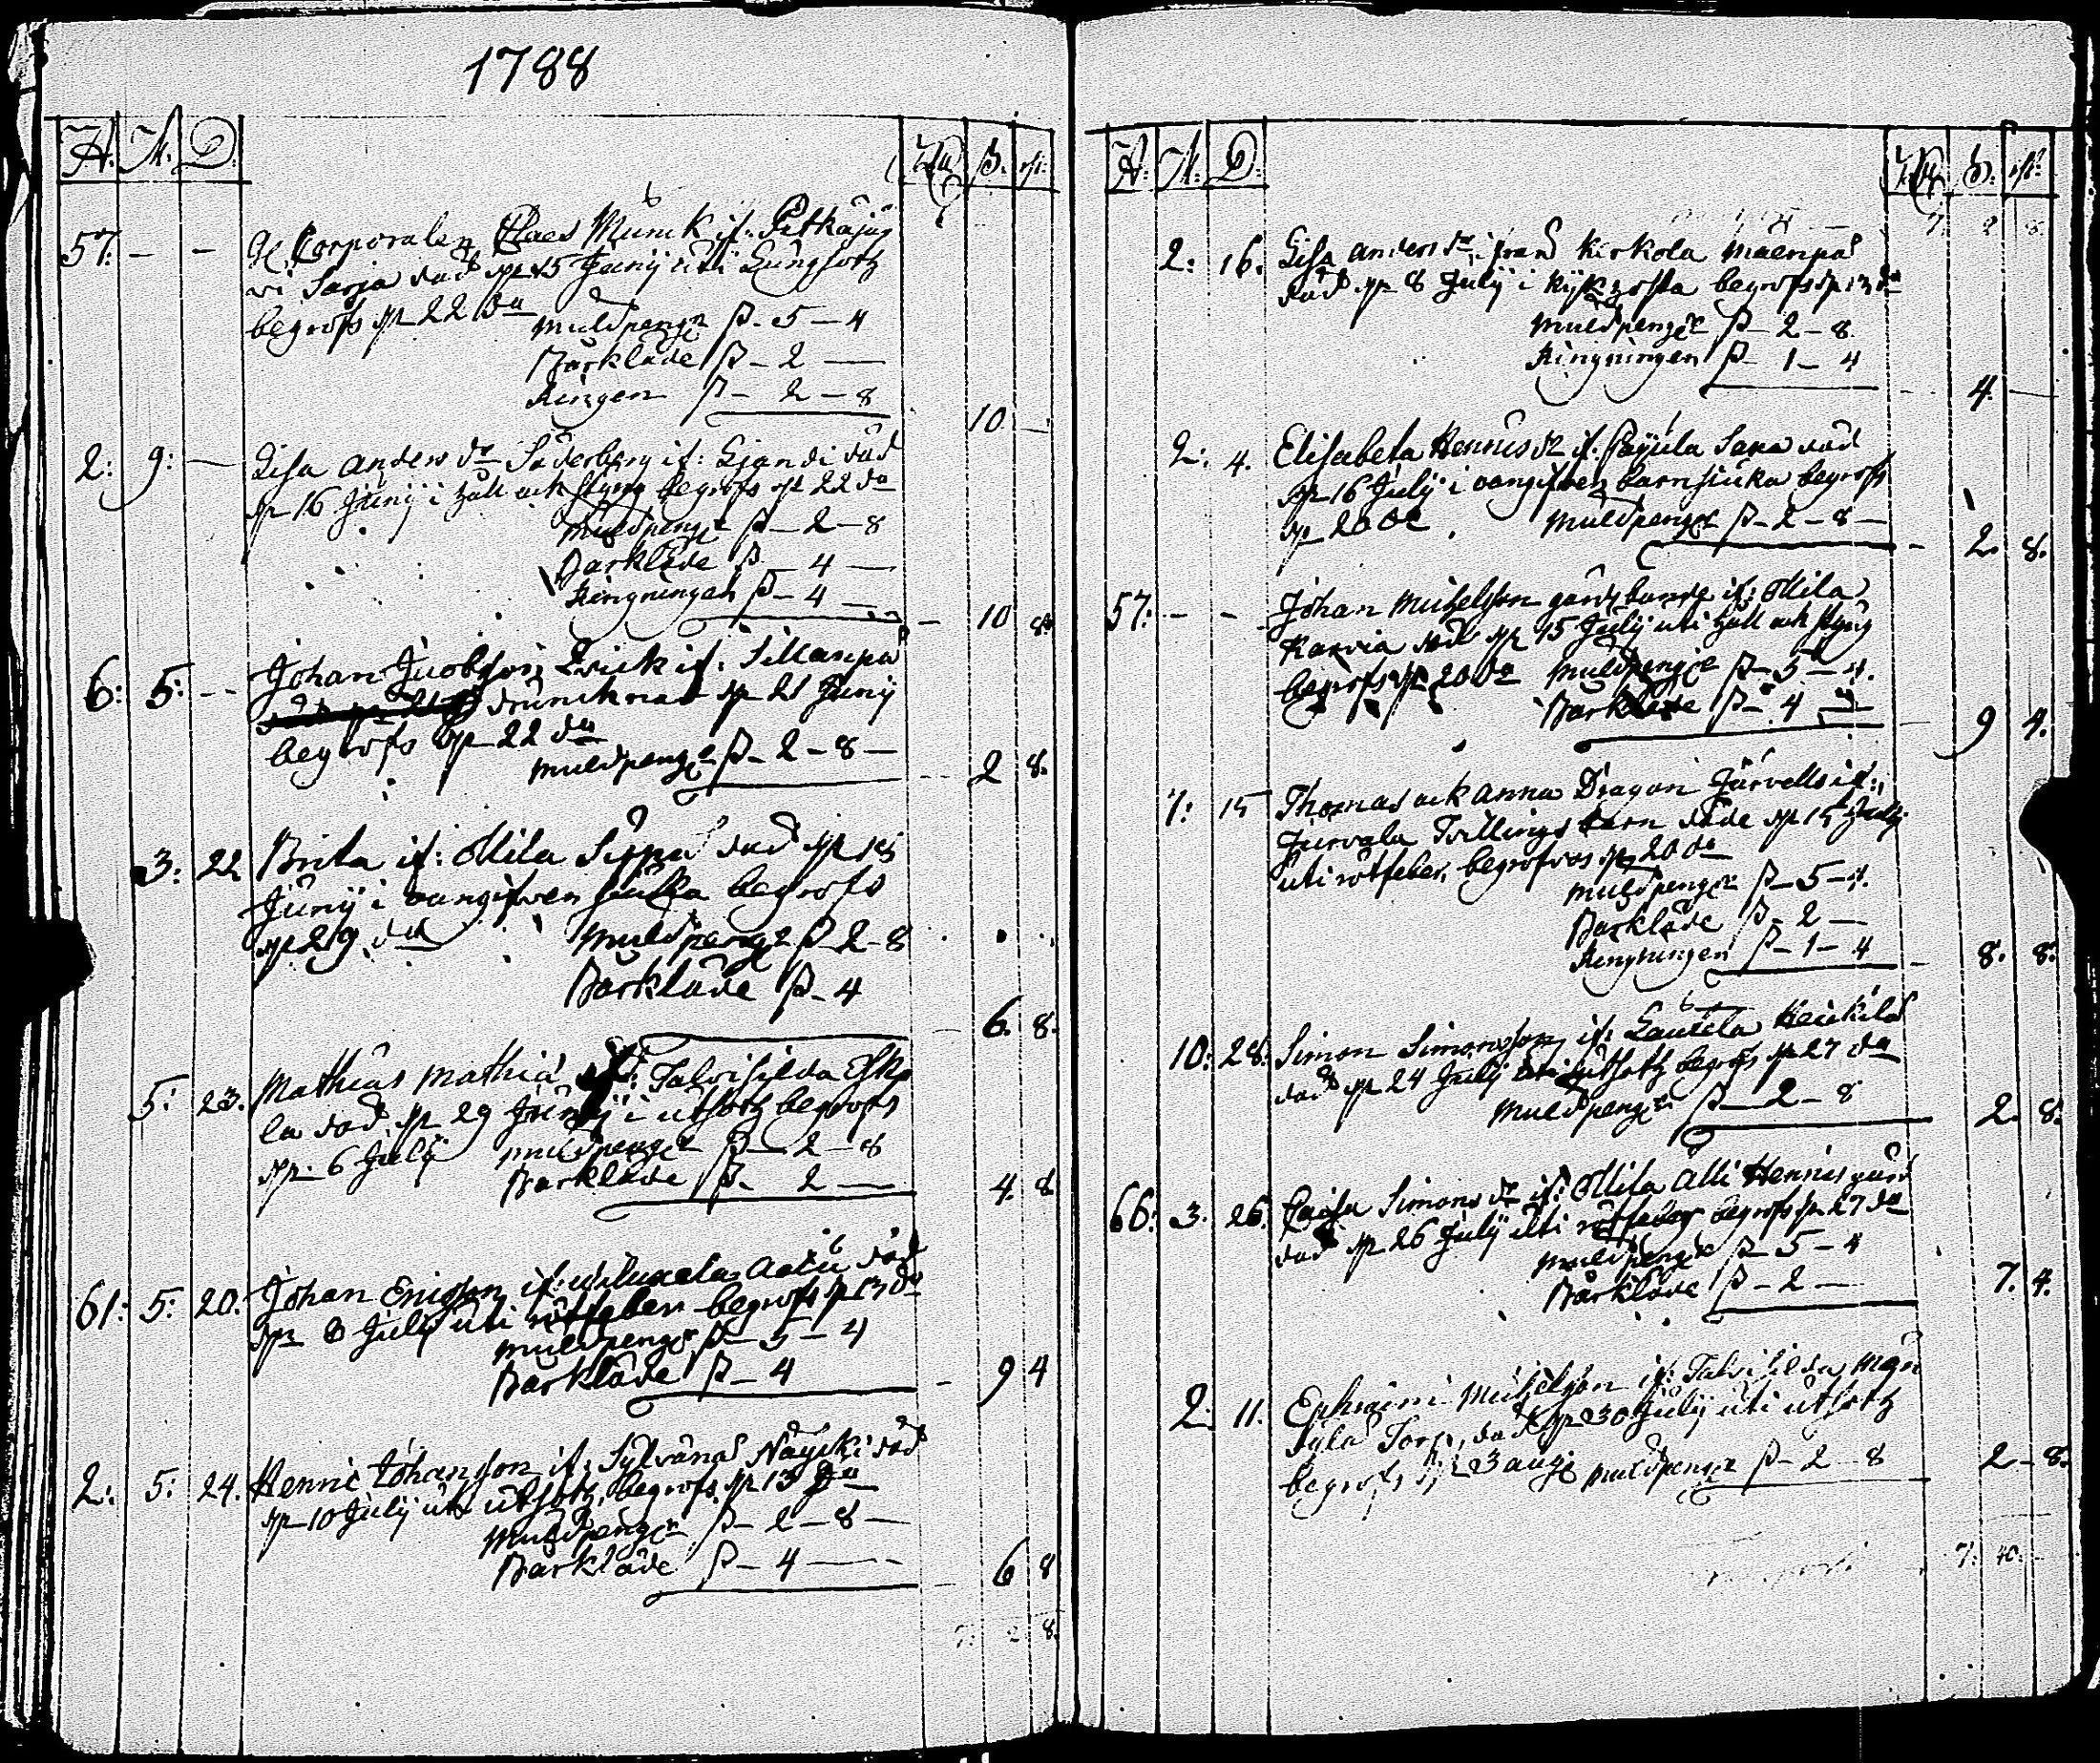 1788
Å: M. D. ß.
57: — — Gl Corporalen Claes Munck if: Pitkäjär
vi Sarja död dn 15 Junij uti Lungsotz
begrofs dn 22 do
Muldpengr ß. 5 — 4
Bårkläde ß — 2 —
Ringen ß — 2 — 8
10 —
2: 9: — Lisa Anders dr Söderberg if: död
dn 16 Junij i håll ock styng begrofs dn 22 do
Muldpengr ß — 2 — 8
Bårkläde ß — 4 —
Ringningen ß — 4 —
— 10 8.
6: 5: — Johan Jacobson if: Sillanpä
drunknat dn 21 Junij
begrofs dn 22 do
Muldpengr ß — 2 — 8 —
2 8.
3: 22 Brita if: Ollila Sippa död dn
Junij i oangifven siuka begrofs
dn 29 do Muldpengr ß — 2 — 8
Bårkläde ß — 4
6. 8.
5: 23. Mathias Mathiæ if: Talvisilda Esko
la död dn 29 Junij i utsotz begrofs
dn 6 Julij Muldpengr ß — 2 — 8
Bårkläde ß. 2 —
4. 8
61: 5: 20. Johan if: död
dn 8 Julij uti rötfeber begrofs dn 13 do
Muldpengr ß — 5 — 4
Bårkläde ß — 4
— 9 4
2: 5: 24. Henric Johanson if: Sylvänä Näyski död
dn 10 Julij uti utsotz begrofs dn 13 do
Muldpengr ß — 2 — 8 —
Bårkläde ß — 4 —
— 6 8
7: 2 8.
Å: M. D: ß.
7 2 8
2: 16. Lisa Anders dr ifrån Kirkola Mäenpä
död dn 8 Julij i Kijkhosta begrofs dn 13 do
Muldpenger ß — 2 — 8
Ringningen ß — 1 — 4
— 4. —
2: 4. Elisabeta Hennis dr if: död
dn 16 Julij i oangifven barnsiuka begrofs
dn 20 do Muldpengr ß — 2 — 8 —
— 2. 8.
57: — — Johan Michelson gårdsbonde if: Ollila
Karvia död dn 15 Julij uti håll ock styng
begrofs dn 20 do Muldpengr ß — 5 — 4.
Bårkläde ß — 4 —
9 4.
7: 15 Thomas ock Anna Dragon Järvells if:
Jurvala Tvillings barn döde dn 15 Julij
uti rötfeber, begrofvos dn 20 do
Muldpengr ß — 5 — 4.
Bårkläde ß — 2 —
Ringningen ß — 1 — 4
— 8. 8.
10: 28. Simon Simonsson if: Lauttela Heickilä
död dn 24 Julij uti utsotz begrofs dn 27 do
Muldpengr ß — 2 — 8
2. 8.
66: 3. 26. Caisa Simons dr if: Ollila Alli Hennis
död dn 26 Julij uti rötfeber begrofs dn 27 do
Muldpengr ß — 5 — 4
Bårkläde ß — 2 —
7. 4.
2: 11. Ephraim Michelson if: Talvisilda Män
tylä Torp, död dn 30 Julij uti utsotz
begrofs dn 3 aug Muldpengr ß — 2 — 8
2 — 8.
7. 40. —